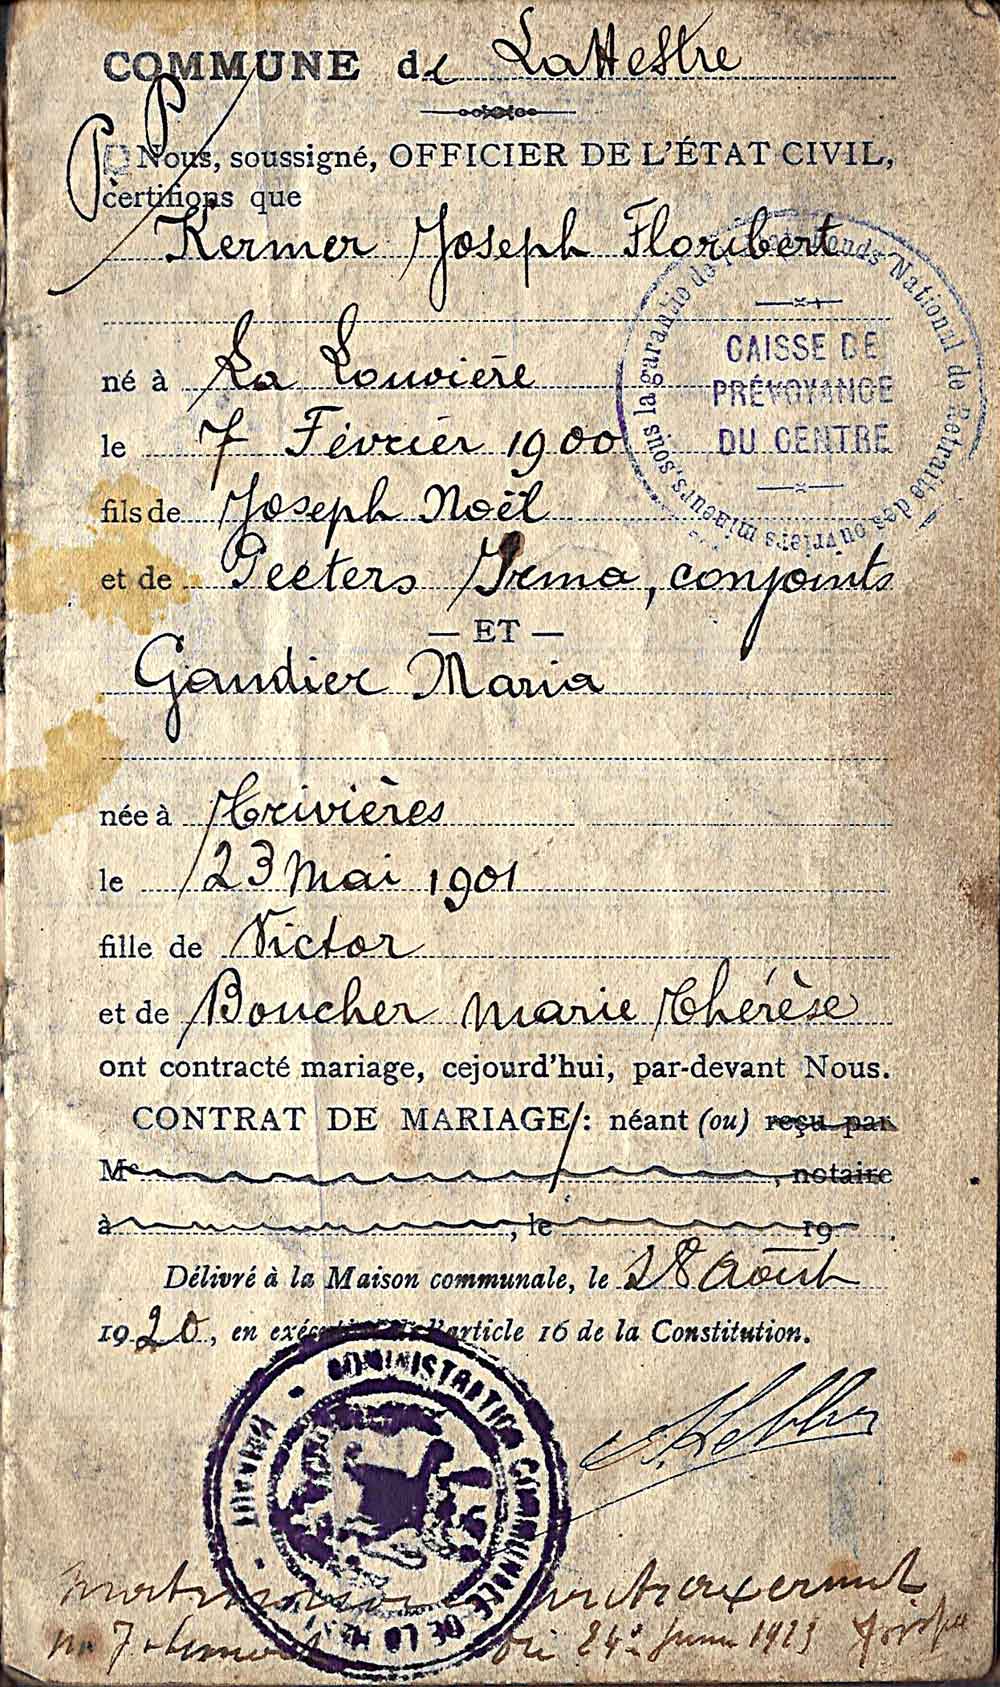 COMMUNE de La Hestre
Nous, soussigné, OFFICIER DE L'ÉTAT CIVIL,
certifions que
Kermer Joseph Floribert
sous la garantie du Fonds National de Retraite des ouvriers mineurs
CAISSE DE
PRÉVOYANCE
DU CENTRE
né à La Louvière
le 7 Février 1900
fils de Joseph Noël
et de Peeters Irma, conjoints
— ET —
Gaudier Maria
née à Trivières
le 23 Mai 1901
fille de Victor
et de Boucher Marie Thérèse
ont contracté mariage, cejourd'hui, par-devant Nous.
CONTRAT DE MARIAGE : néant (ou) reçu par
Me , notaire
à , le 19 .
Délivré à la Maison communale, le 28 Août
1920, en exécution de l'article 16 de la Constitution.
ADMINISTRATION COMMUNALE DE LA HESTRE
1923